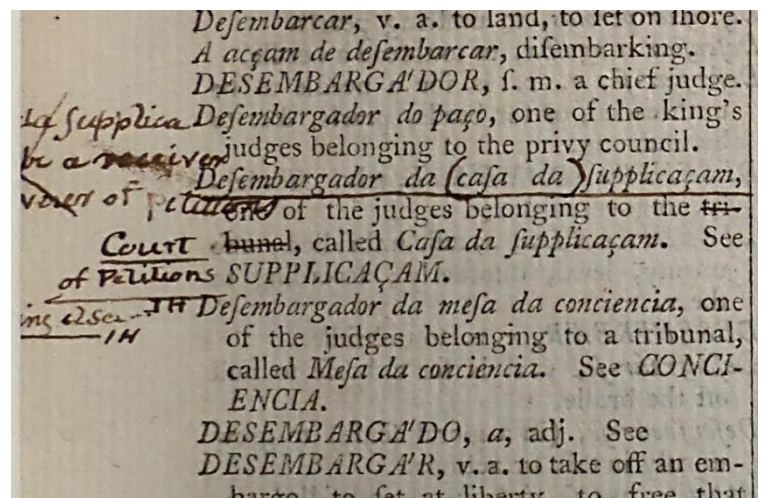 Deſembarcar, v. a. to land, to ſet on ſhore.
A acçam de deſembarcar, diſembarking.
DESEMBARGA'DOR, ſ. m. a chief judge.
Deſembargador do paço, one of the king's
judges belonging to the privy council.
Deſembargador da (caſa da) ſupplicaçam,
one of the judges belonging to the tri-
bunal, called Caſa da ſupplicaçam. See
SUPPLICAÇAM.
Deſembargador da meſa da conciencia, one
of the judges belonging to a tribunal,
called Meſa da conciencia. See CONCI-
ENCIA.
DESEMBARGA'DO, a, adj. See
DESEMBARGA'R, v. a. to take off an em-
bargo, to ſet at liberty, to free that
Supplica
be a receiver
of petitions
Court
of Petitions
JH
JH